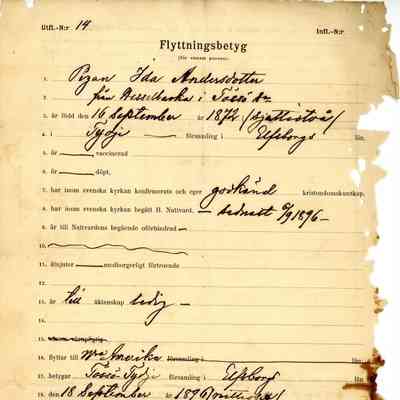 Utfl.-N:r 14. Infl.-N:r
Flyttningsbetyg
(för ensam person).
1. Pigan Ida Andersdotter
2. från Hesselbacka i Tösse
3. är född den 16 September år 1872 /sjuttiotvå/
4. i Tydje församling i Elfsborgs län,
5. är vaccinerad
6. är döpt,
7. har inom svenska kyrkan konfirmerats och eger godkänd kristendomskunskap,
8. har inom svenska kyrkan begått H. Nattvard, – senast 6/9 1896 –
9. är till Nattvardens begående oförhindrad
10.
11. åtnjuter medborgerligt förtroende
12.
13. är till äktenskap ledig –
15.
16. flyttar till N:a Amerika församling i län
17. betygar Tössö-Tydje församling i Elfsborgs län
18. den 18 September 1896